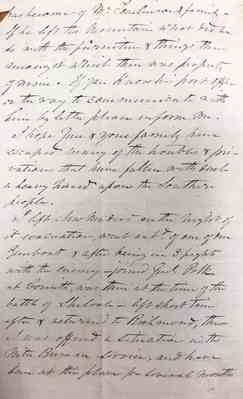 has become of Mr Tomlinson & family.
If he left the Mountain what did he
do with the furniture & things there
amongst which there was property
of mine. If you know his post office
or the way to communicate with
him by letter please inform me.
I hope you & your family have
escaped many of the troubles & pri-
vations that have fallen with such
a heavy hand upon the Southern
people.
I left New Madrid on the night of
its evacuation, went out of one of our
Gunboat & after being in 3 fights
with the enemy joined Genl. Polk
at Corinth, was there at the time of the
battle of Shiloh left short time
after & returned to Richmond, then
I was offered a situation in the
Nitre Bureau service, and have
been at this place for several months